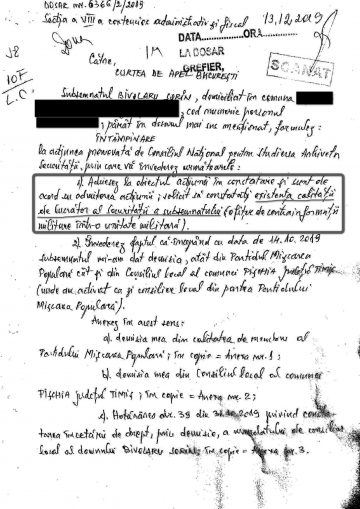 DOSAR nr. 6366/2/2019
Secția a VIII a contencios administrativ și fiscal 13.12.2019
DATA............ORA............
LA DOSAR
GREFIER,
J8
10F
L.C.
Către, 1M
CURTEA DE APEL BUCUREȘTI
SCANAT
Subsemnatul BIVOLARU SORIN, domiciliat în comuna
, cod numeric personal
, pârât în dosarul mai sus menționat, formulez:
ÎNTÂMPINARE
la acțiunea promovată de Consiliul Național pentru Studierea Arhivelor
Securității, prin care vă învederez următoarele:
1) Achiesez la obiectul acțiunii în constatare și sunt de
acord cu admiterea acțiunii; solicit să constatați existența calității
de lucrător al securității a subsemnatului (ofițer de contrainformații
militare într-o unitate militară).
2) Învederez faptul că începând cu data de 14.10.2019
subsemnatul mi-am dat demisia, atât din Partidul Mișcarea
Populară cât și din Consiliul local al comunei PIȘCHIA județul TIMIȘ
(unde am activat ca și consilier local din partea Partidului
Mișcarea Populară).
Anexez în acest sens:
a) demisia mea din calitatea de membru al
Partidului Mișcarea Populară; în copie = Anexa nr. 1;
b) demisia mea din Consiliul local al comunei
PIȘCHIA județul TIMIȘ; în copie = Anexa nr. 2;
c) Hotărârea nr. 39 din 2019 privind consta-
tarea încetării de drept, prin demisie, a mandatului de consilier
local al domnului BIVOLARU SORIN; în copie = Anexa nr. 3.